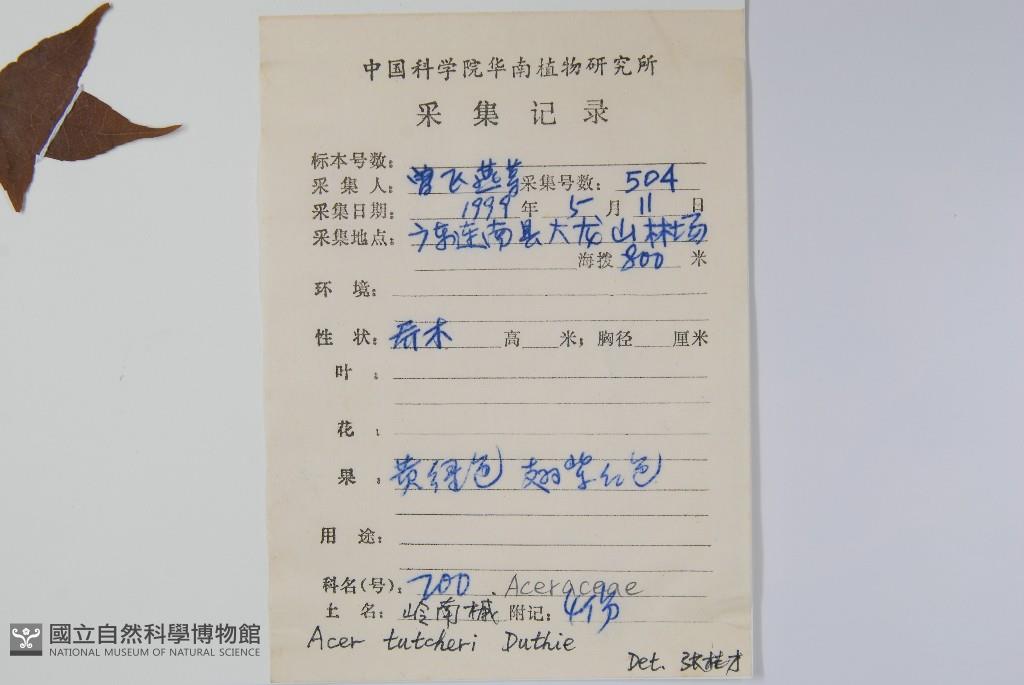 中国科学院华南植物研究所
采集记录
标本号数：
采集人：曾飞燕等 采集号数：504
采集日期：1999年5月11日
采集地点：广东连南县大龙山林场
海拨800米
环境：
性状：乔木 高 米；胸径 厘米
叶：
花：
果：黄绿色 翅紫红色
用途：
科名(号)：200 . Aceraceae
土名：岭南槭 附记：4份
Acer tutcheri Duthie
Det. 张桂才
國立自然科學博物館
NATIONAL MUSEUM OF NATURAL SCIENCE